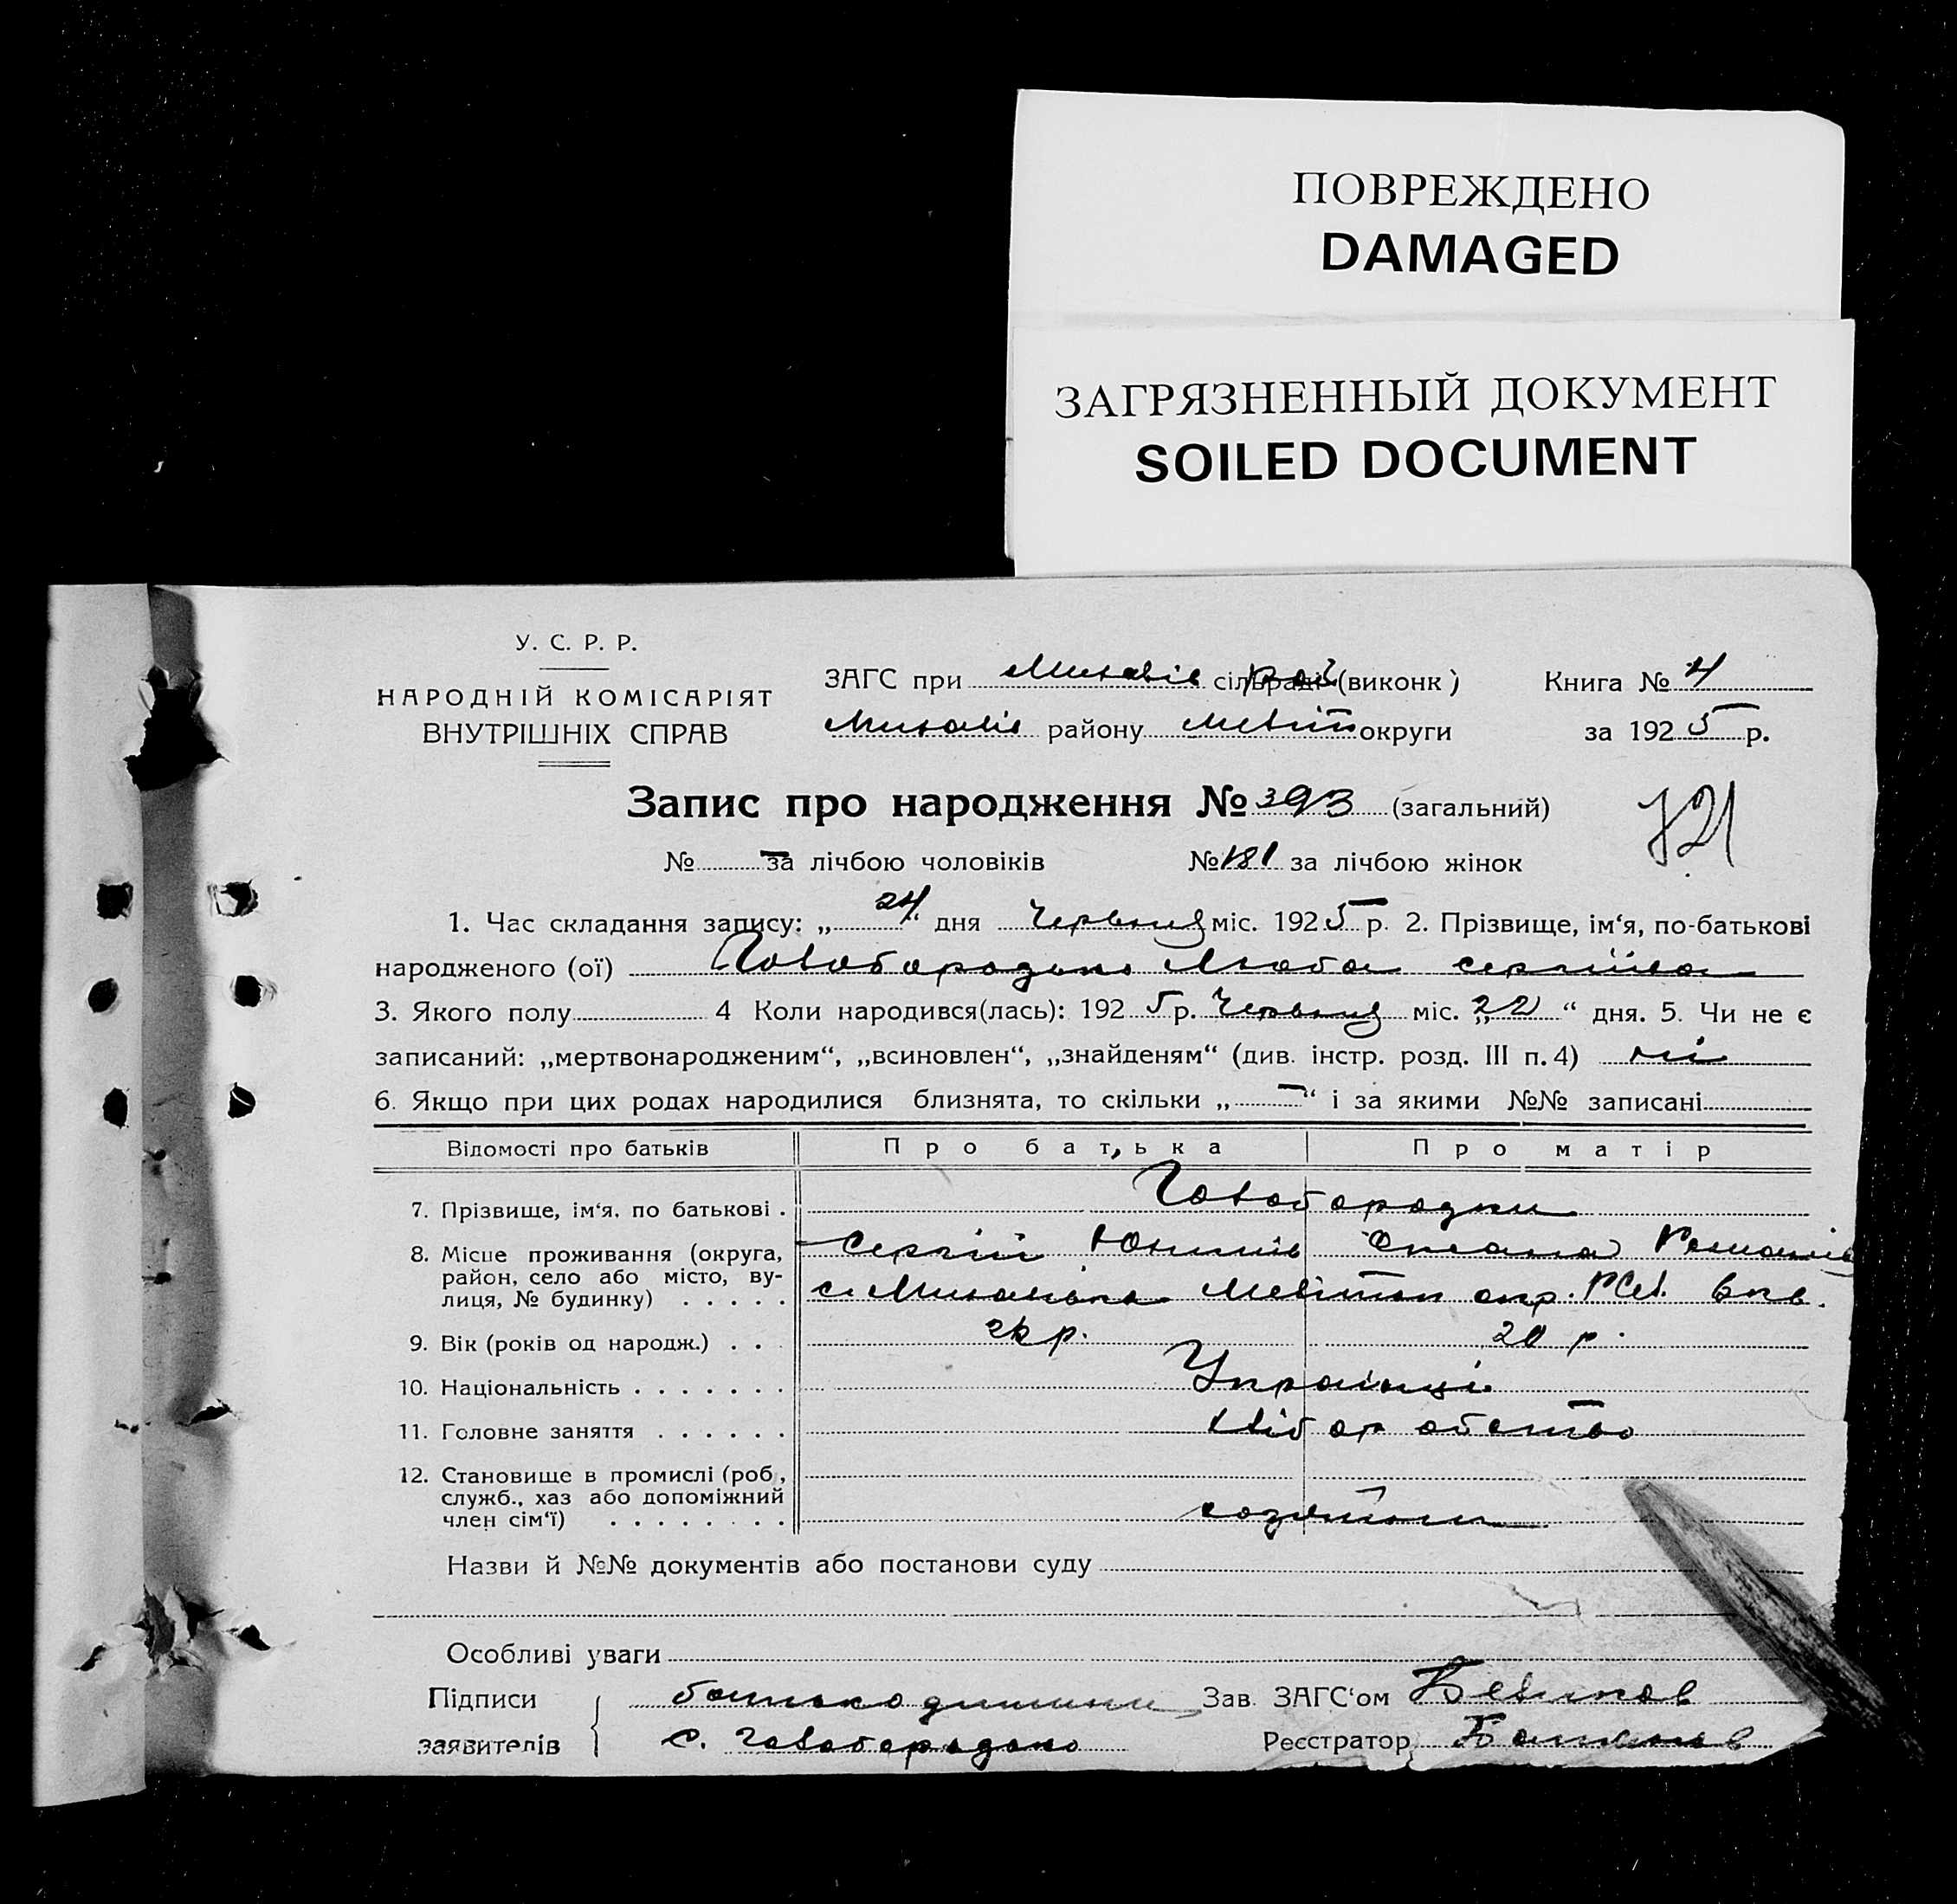 ПОВРЕЖДЕНО
DAMAGED
ЗАГРЯЗНЕННЫЙ ДОКУМЕНТ
SOILED DOCUMENT
У. С. Р. Р.
НАРОДНІЙ КОМІСАРІЯТ
ВНУТРІШНІХ СПРАВ
ЗАГС при сільраді (виконк) Книга № 4
району округи за 1925 р.
Запис про народження № 393 (загальний)
№ — за лічбою чоловіків № 181 за лічбою жінок
721
1. Час складання запису: „24“ дня Червня міс. 1925 р. 2. Прізвище, ім‘я, по-батькові
народженого (ої) Люба Сергіївна
3. Якого полу 4 Коли народився(лась): 1925 р. Червня міс. „22“ дня. 5. Чи не є
записаний: „мертвонародженим“, „всиновлен“, „знайденям“ (див. інстр. розд. III п. 4) ні
6. Якщо при цих родах народилися близнята, то скільки „—“ і за якими №№ записані
Відомості про батьків Про батька Про матір
7. Прізвище, ім‘я, по батькові
8. Місце проживання (округа, Сергій Оксана
район, село або місто, ву-
лиця, № будинку) с. окр.
9. Вік (років од народж.) р. 20 р.
10. Національність Українці
11. Головне заняття хліборобство
12. Становище в промислі (роб.,
служб., хаз або допоміжний
член сім‘ї)
Назви й №№ документів або постанови суду
Особливі уваги
Підписи батько дитини Зав. ЗАГС‘ом
заявителів С. Реєстратор